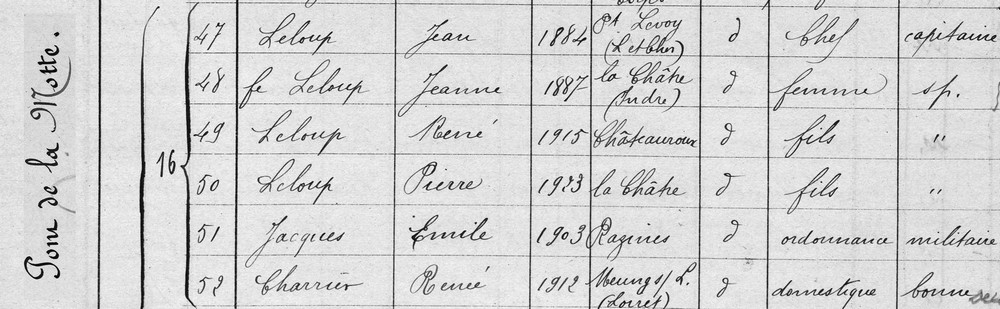 Pom de la Motte.
16
47 Leloup Jean 1884 Pt Levoy (L et Cher) d Chef capitaine
48 fe Leloup Jeanne 1887 la Châtre (Indre) d femme sp.
49 Leloup René 1915 Châteauroux d fils "
50 Leloup Pierre 1923 la Châtre d fils "
51 Jacques Emile 1903 Razines d ordonnance militaire
52 Charrier Renée 1912 Meung s/ L. (Loiret) d domestique bonne